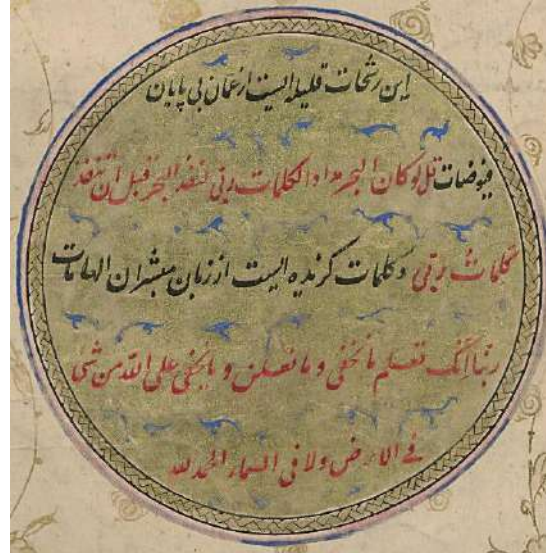 این رشحات قلیله ایست از عمان بی پایان
فیوضات قل لو کان البحر مدادا لکلمات ربی لنفد البحر قبل ان تنفد
کلمات ربی و کلمات گزیده ایست از زبان مبشران الهامات
ربنا انک تعلم ما نخفی و ما نعلن و ما یخفی علی الله من شی
فی الارض ولا فی السماء الحمد لله